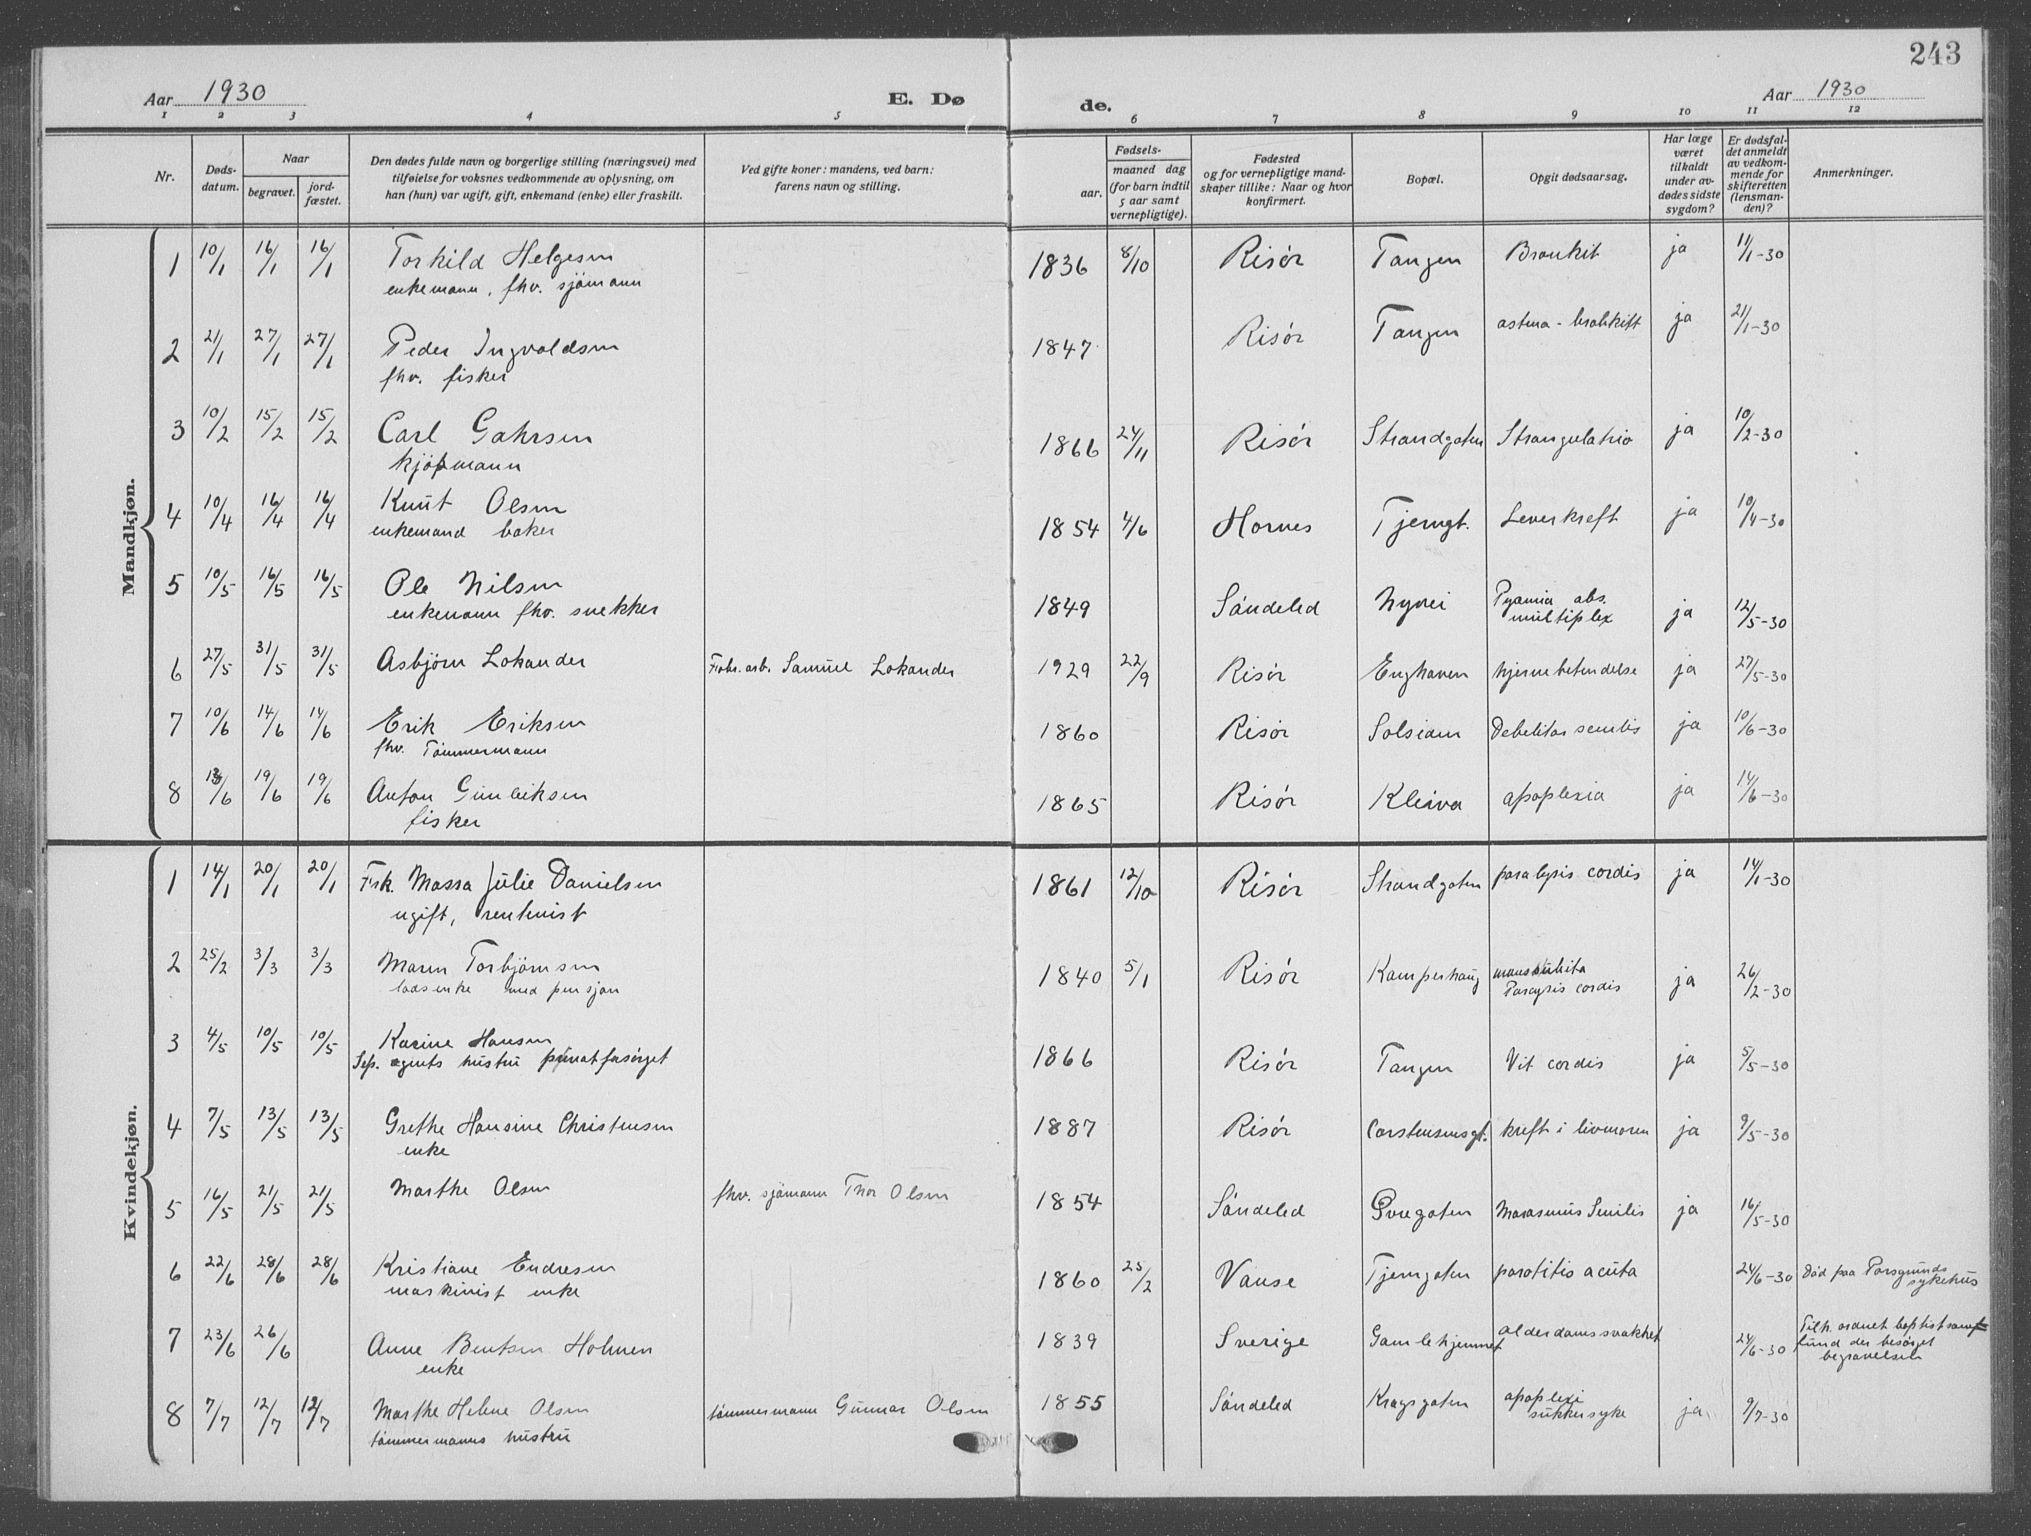 243
Aar 1930
E. Dø
de.
Aar 1930
1 2 3 4 5 6 7 8 9 10 11 12
Nr.
Døds-
datum.
Naar
begravet.
jord-
fæstet.
Den dødes fulde navn og borgerlige stilling (næringsvei) med
tilføielse for voksnes vedkommende av oplysning, om
han (hun) var ugift, gift, enkemand (enke) eller fraskilt.
Ved gifte koner: mandens, ved barn:
farens navn og stilling.
Fødsels-
aar.
maaned dag
(for barn indtil
5 aar samt
vernepligtige).
Fødested
og for vernepligtige mand-
skaper tillike: Naar og hvor
konfirmert.
Bopæl.
Opgit dødsaarsag.
Har læge
været
tilkaldt
under av-
dødes sidste
sygdom?
Er dødsfal-
det anmeldt
av vedkom-
mende for
skifteretten
(lensman-
den)?
Anmerkninger.
Mandkjøn.
1 10/1 16/1 16/1 Torkild Helgesen 1836 8/10 Risör Tangen Bronkit ja 11/1-30
enkemann, fhv. sjömann
2 21/1 27/1 27/1 Peder Ingvaldsen 1847 Risör Tangen astma - ja 21/1-30
fhv. fisker
3 10/2 15/2 15/2 Carl Gahrsen 1866 24/11 Risör Strandgaten Strangulatio ja 10/2-30
kjöpmann
4 10/4 16/4 16/4 Knut Olsen 1854 4/6 Hornes Tjerngt. Leverkreft ja 10/4-30
enkemand baker
5 10/5 16/5 16/5 Ole Nilsen 1849 Söndeled Nyvei Pyämia abs. ja 12/5-30
multiplex
enkemann fhv. snekker
6 27/5 31/5 31/5 Asbjörn Lokander Fabr. arb. Samuel Lokander 1929 22/9 Risör Enghaven hjernebetendelse ja 27/5-30
7 10/6 14/6 14/6 Erik Eriksen 1860 Risör Solsiden Debelitas senilis ja 10/6-30
fhv. Tömmermann
8 13/6 19/6 19/6 Anton Gunleiksen 1865 Risör Kleiva apoplexia ja 14/6-30
fisker
Kvindekjøn.
1 14/1 20/1 20/1 Frk. Massa Julie Danielsen 1861 12/10 Risör Strandgaten paralysis cordis ja 14/1-30
ugift, rentenist
2 25/2 3/3 3/3 Maren Torbjörnsen 1840 5/1 Risör Kamperhaug mors subita ja 26/2-30
Paralysis cordis
losenke med pensjon
3 4/5 10/5 10/5 Karine Hansen 1866 Risör Tangen Vit cordis ja 5/5-30
Sep. agents hustru privat forsörget
4 7/5 13/5 13/5 Grethe Hansine Christensen 1887 Risör Carstensensgt. kreft i livmoren ja 9/5-30
enke
5 16/5 21/5 21/5 Marthe Olsen fhv. sjömann Thor Olsen 1854 Söndeled Övregaten Marasmus Senilis ja 16/5-30
6 22/6 28/6 28/6 Kristiane Endresen 1860 25/2 Vanse Tjerngaten parotitis acuta 24/6-30 död paa Porsgrunds
sykehus
maskinist enke
7 23/6 26/6 Anne Bentsen Holmen 1839 Sverige Gamlehjemmet alderdomssvakhet 24/6-30 Tilh. ordnet baptistsam-
fund der besörget
begravelsen
enke
8 7/7 12/7 12/7 Marthe Helene Olsen tömmermann Gunnar Olsen 1855 Söndeled Kragsgaten apoplexi ja 9/7-30
sukkersyke
tömmermanns hustru